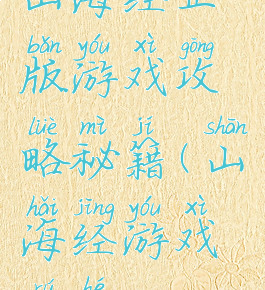 山海经正
bǎn yóu xì gōng
版游戏攻
lüè mì jí shān
略秘籍(山
hǎi jīng yóu xì
海经游戏
rú hé